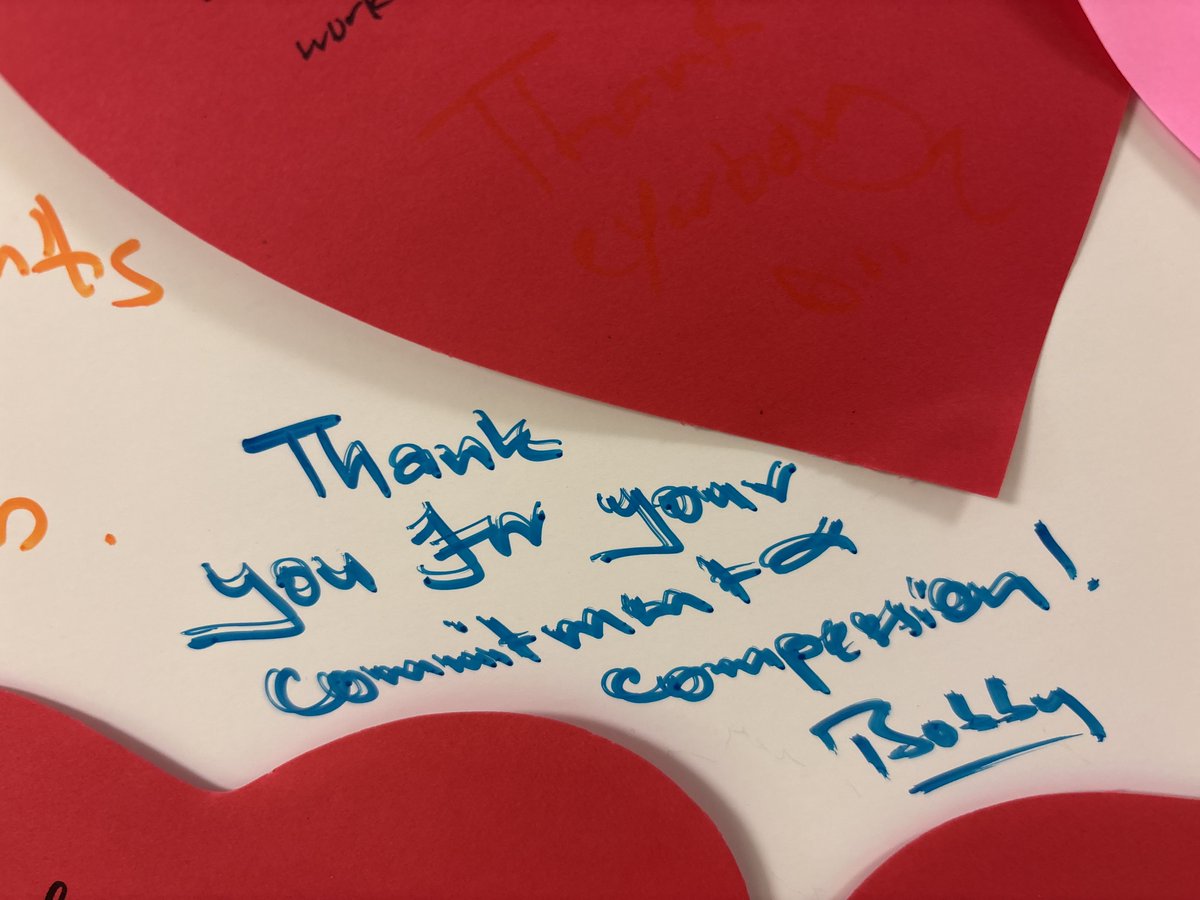 work
Thank
nts
s.
Thank
you for your
commitment &
compersion!
Bobby